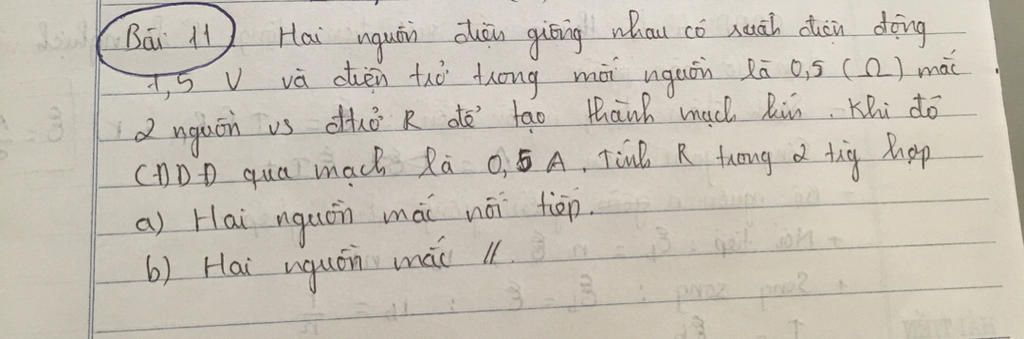 Bài 11 Hai nguồn điện giống nhau có suất điện động
1,5 V và điện trở trong mỗi nguồn là 0,5 (Ω) mắc
2 nguồn vs đtrở R để tạo thành mạch kín. Khi đó
CĐDĐ qua mạch là 0,5 A. Tính R trong 2 tig hợp
a) Hai nguồn mắc nối tiếp.
b) Hai nguồn mắc //.